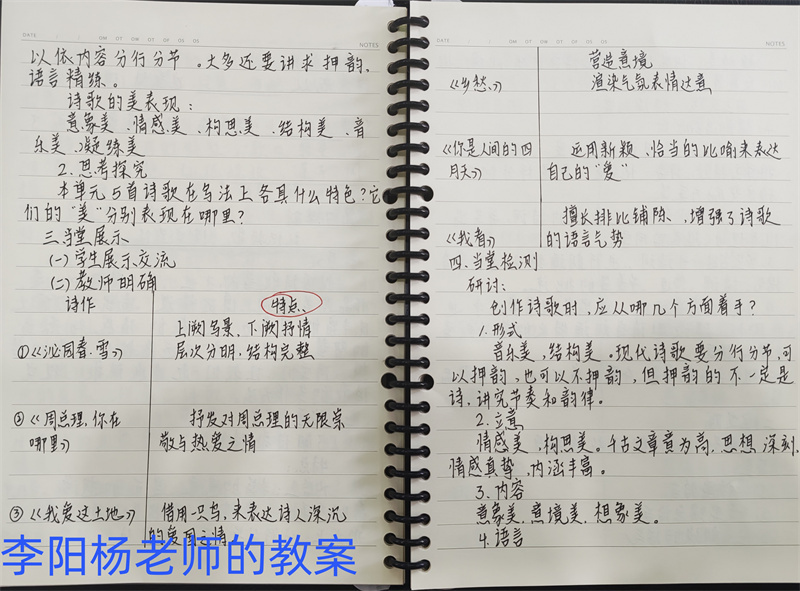 DATE
NOTES
以依内容分行分节。大多还要讲求押韵、
语言精练。
诗歌的美表现：
意象美、情感美、构思美、结构美、音
乐美、凝练美
2.思考探究
本单元5首诗歌在写法上各具什么特色？它
们的“美”分别表现在哪里？
三.当堂展示
(一)学生展示交流
(二)教师明确
诗作 特点
上阕写景、下阕抒情
①《沁园春·雪》 层次分明,结构完整
②《周总理,你在 抒发对周总理的无限崇
哪里》 敬与热爱之情
③《我爱这土地》 借用一只鸟,来表达诗人深沉
的爱国之情。
李阳杨老师的教案
DATE
NOTES
营造意境
《乡愁》 渲染气氛表情达意
《你是人间的四 运用新颖、恰当的比喻来表达
月天》 自己的“爱”
擅长排比铺陈、增强了诗歌
《我看》 的语言气势
四.当堂检测
研讨：
创作诗歌时,应从哪几个方面着手？
1.形式
音乐美,结构美。现代诗歌要分行分节,可
以押韵,也可以不押韵,但押韵的不一定是
诗,讲究节奏和韵律。
2.立意
情感美,构思美。千古文章意为高,思想深刻,
情感真挚,内涵丰富。
3.内容
意象美,意境美,想象美。
4.语言